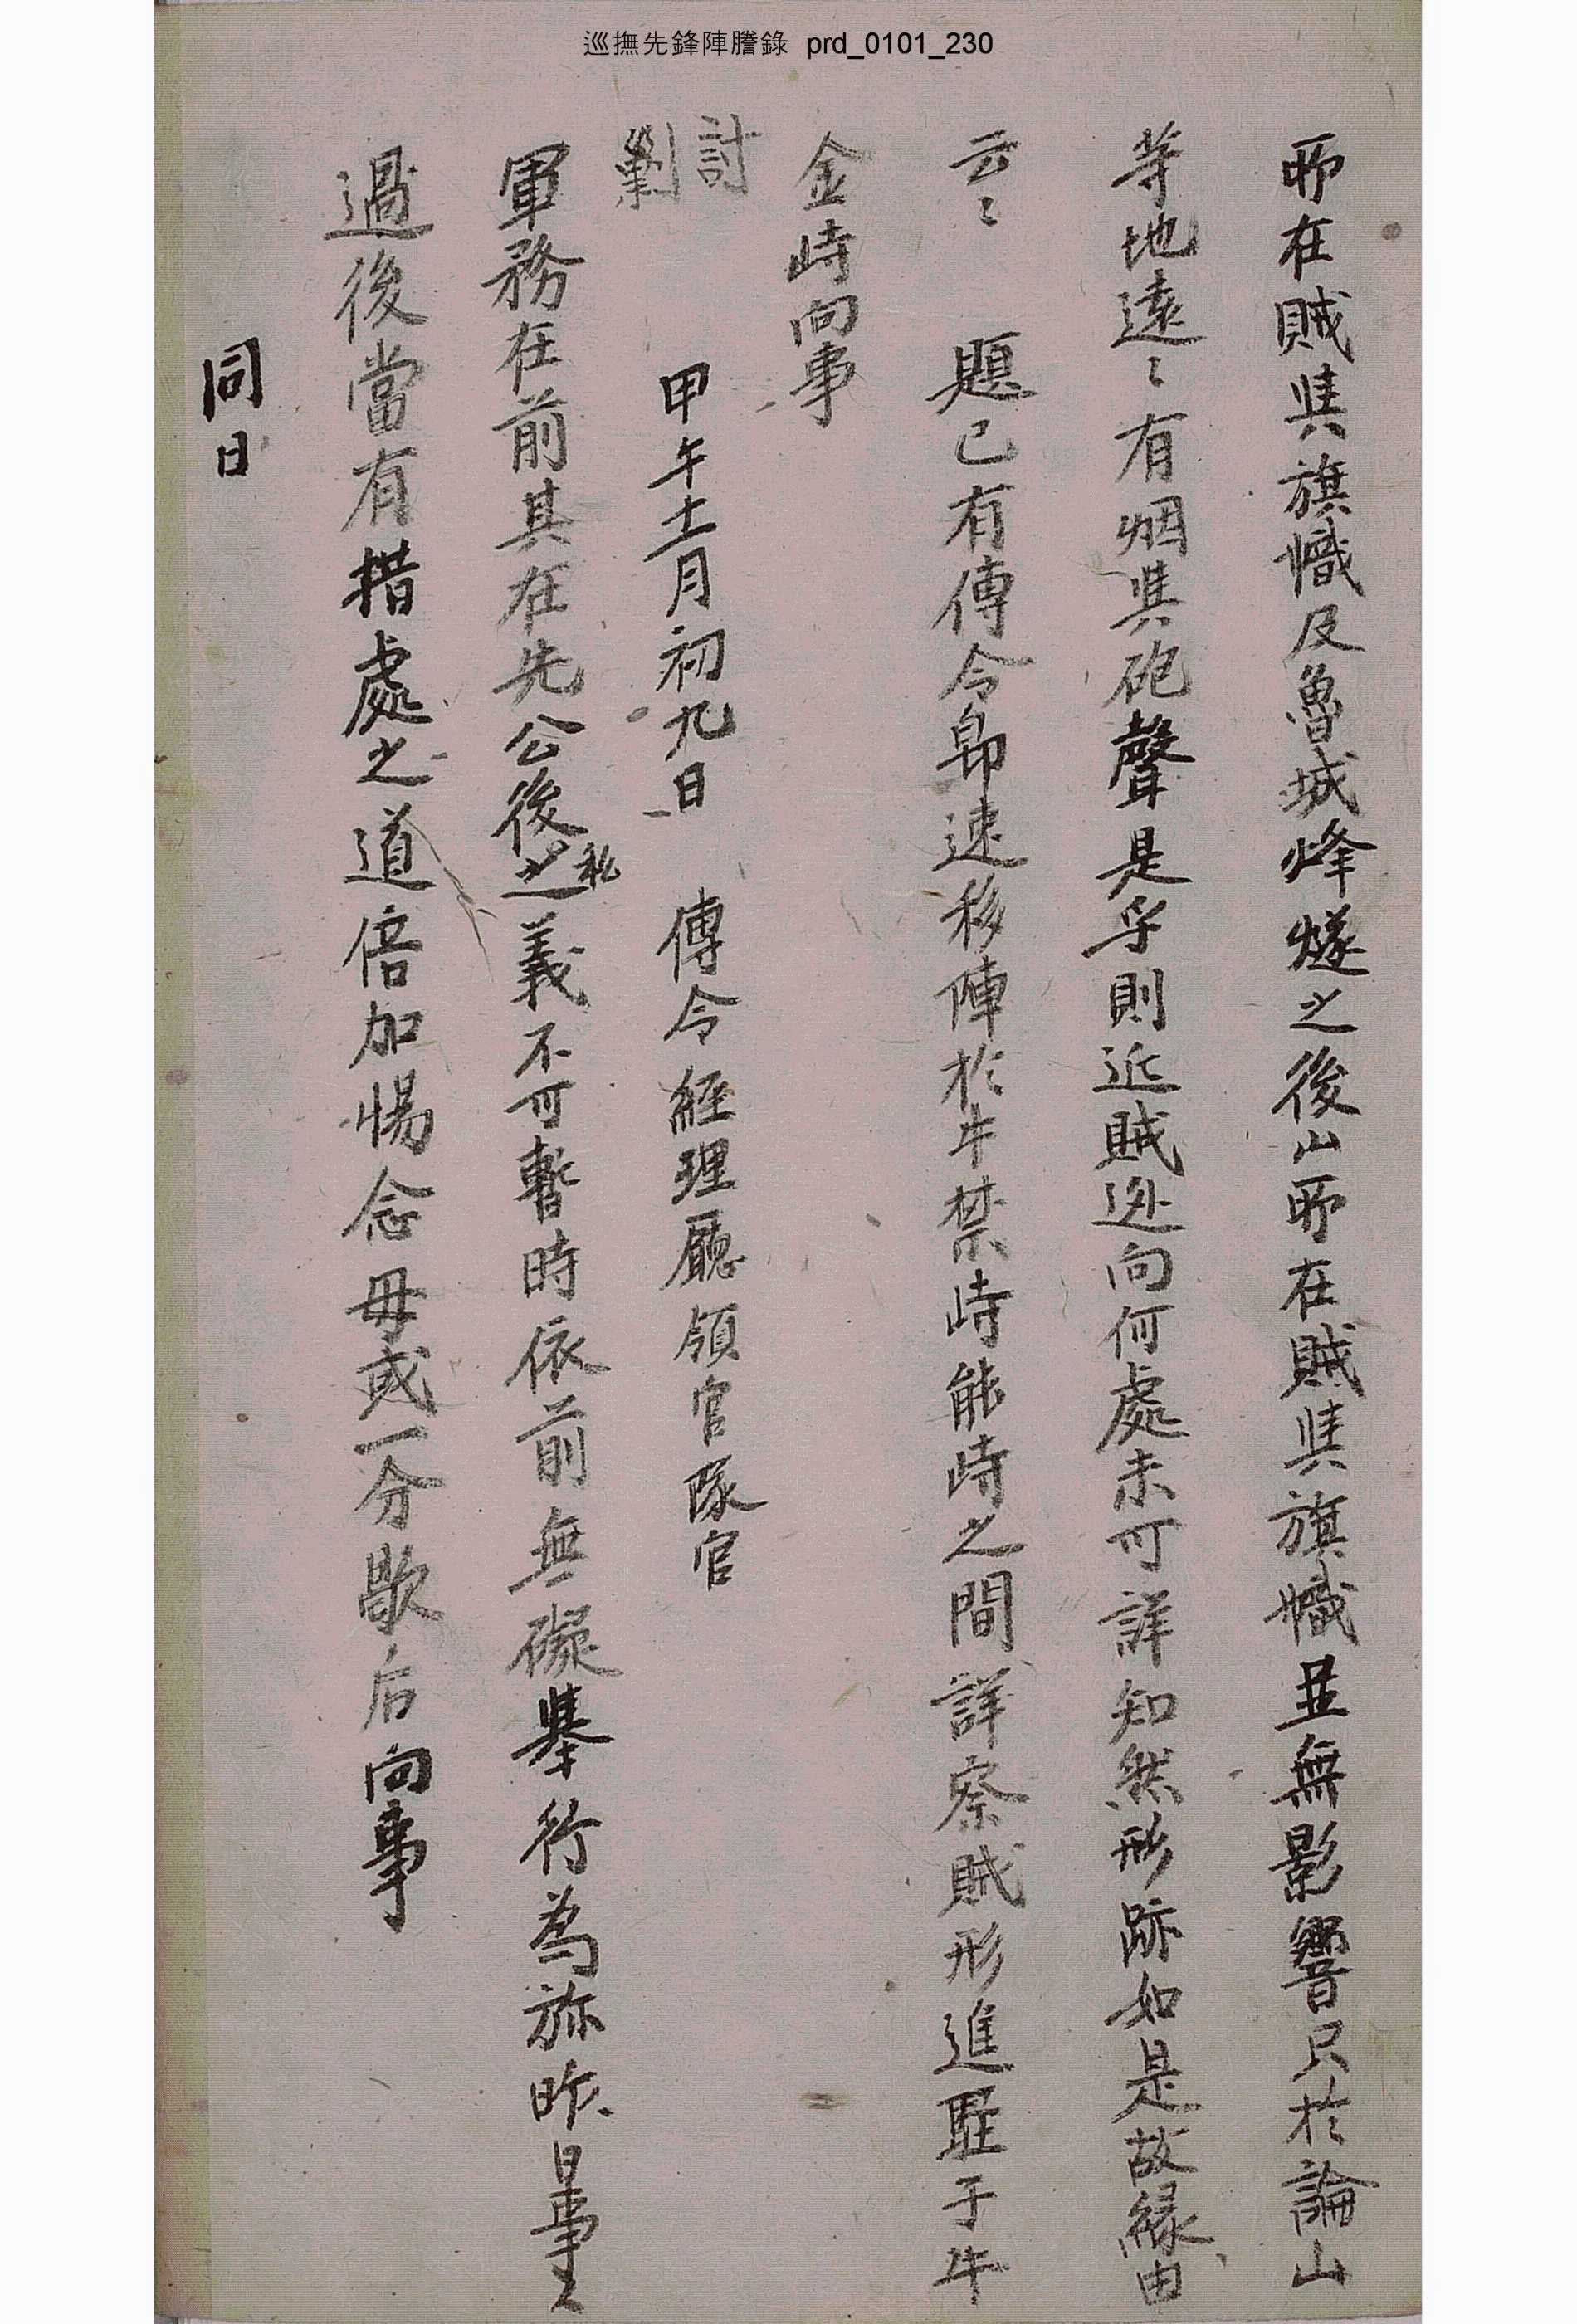 巡撫先鋒陣謄錄 prd_0101_230
所在賊與旗幟及魯城烽燧之後山所在賊與旗幟並無影響只於論山
等地遠〻有烟與砲聲是乎則近賊逃向何處未可詳知然形跡如是故緣由
云〻 題已有傳令卽速移陣於牛禁峙能峙之間詳察賊形進駐于牛
金峙向事
討
剿 甲午十一月初九日 傳令經理廳領官隊官
軍務在前其在先公後私之義不可暫時依前無礙擧行爲旀昨日事
過後當有措處之道倍加惕念毋或一分歇后向事
同日